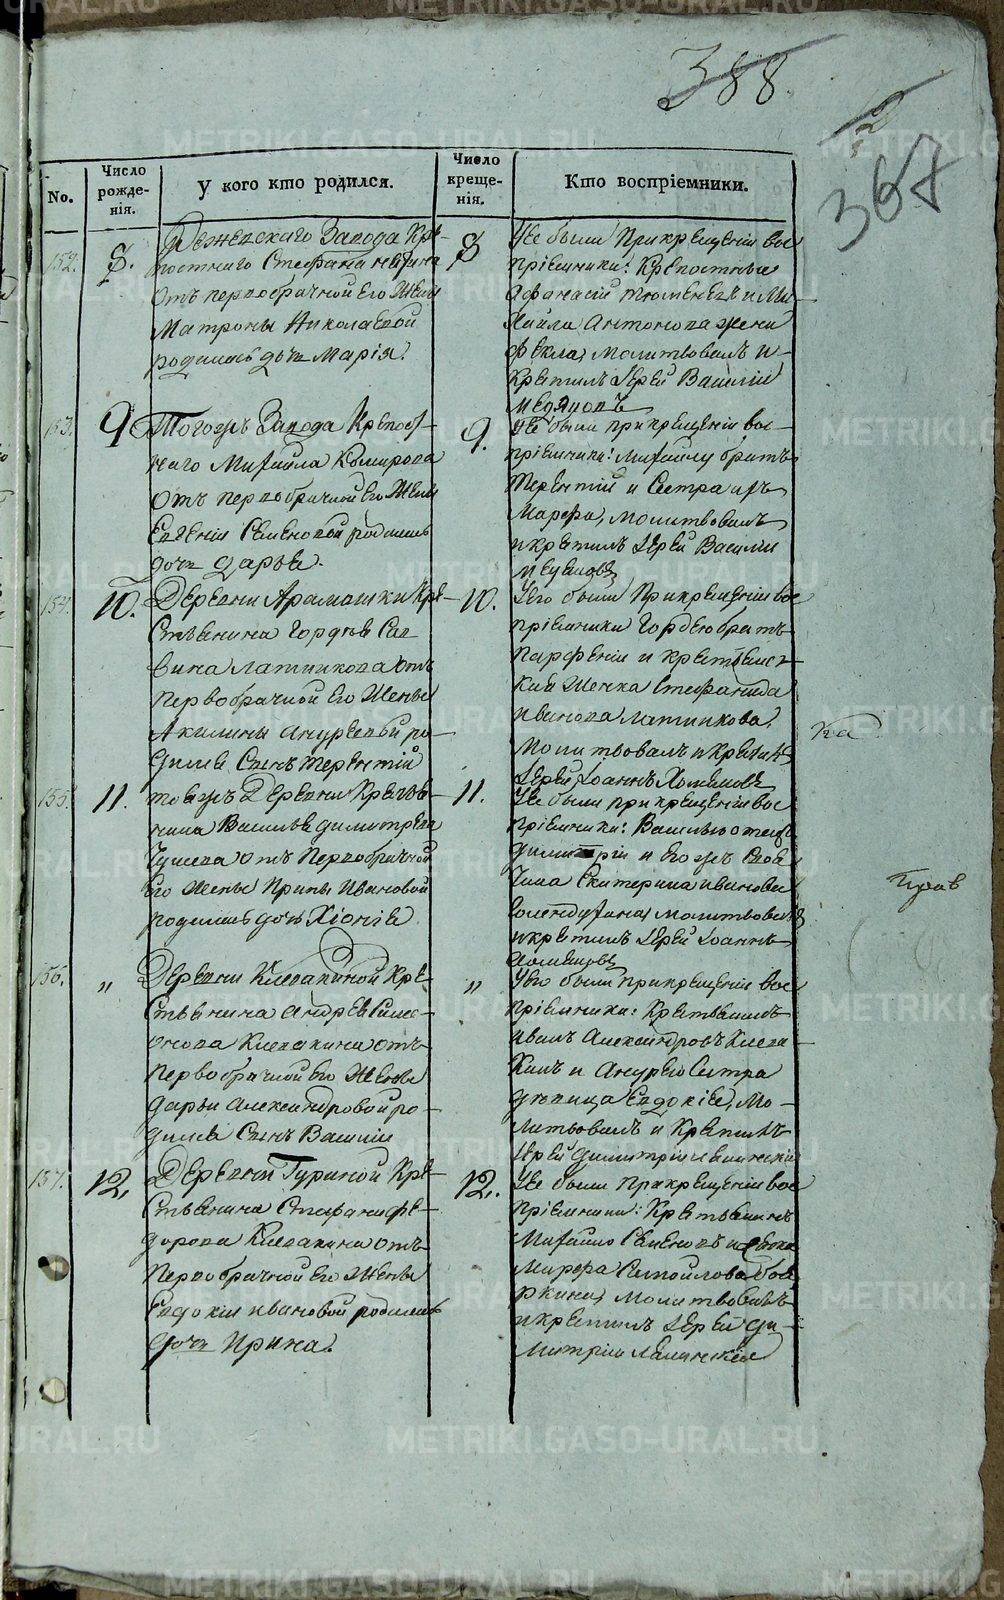 388.
367
No.
Число рожде-
нія.
У кого кто родился.
Число креще-
нія.
Кто воспріемники.
152.
8.
Режевскаго Завода Кре-
постнаго Стефана
отъ первобрачной его Жены
Матроны Николаевой
родилась дочь Марія.
8
Ее были При крещеніи вос
пріемники: Крепостные
Афанасій и Ми-
хайла Антонова жена
Фекла, Молитвовалъ и
Крестилъ Іерей Василій
153.
9
Тогожъ Завода Крепост-
наго Михайла Комарова
отъ первобрачной его Жены
Евгеніи Семеновой родилась
дочь Дарья.
9.
Ее были при крещеніи вос-
пріемники: Михайлу братъ
Терентій и Сестра ихъ
Марфа, Молитвовалъ
и крестилъ Іерей Василій
154.
10.
Деревни Арамашки Кре-
стьянина Гордея Сав
вина Латникова отъ
Первобрачной его Жены
Акилины Андреевой ро-
дился Сынъ Терентій
10.
Его были При крещеніи вос
пріемники Гордею братъ
Парфеній и крестьянс-
кая Женка Стефанида
Иванова Латникова,
Молитвовалъ и крестилъ
Іерей Іоаннъ Хомяковъ
155.
11.
тояжъ Деревни Крестья-
нина Василья Димитріева
отъ Первобрачной
его Жены Ирины Ивановой
родилась дочь Хіонія
11.
Ее были при крещеніи вос
пріемники: Василью отецъ
Димитрій и
Екатерина Иванова
Молитвовалъ
и крестилъ Іерей Іоаннъ
Хомяковъ
156.
"
Деревни Клевакиной Кре-
стьянина Андрея Симе-
онова Клевакина отъ
Первобрачной его Жены
Дарьи Александровой ро-
дился Сынъ Василій
"
Его были при крещеніи вос
пріемники: Крестьянинъ
Иванъ Александровъ Клева-
кинъ и Андрею Сестра
девица Евдокія, Мо-
литвовалъ и Крестилъ
Іерей Димитрій
157.
12.
Деревни Гуриной Кре-
стьянина Стефана Фе-
дорова Клевакина отъ
Первобрачной его Жены
Евдокіи Ивановой родилась
дочь Ирина.
12.
Ее были При крещеніи вос
пріемники: Крестьянинъ
Михайло Семеновъ и девка
Марфа Самойлова
Молитвовалъ
и крестилъ Іерей Ди-
митрій
METRIKI.GASO-URAL.RU